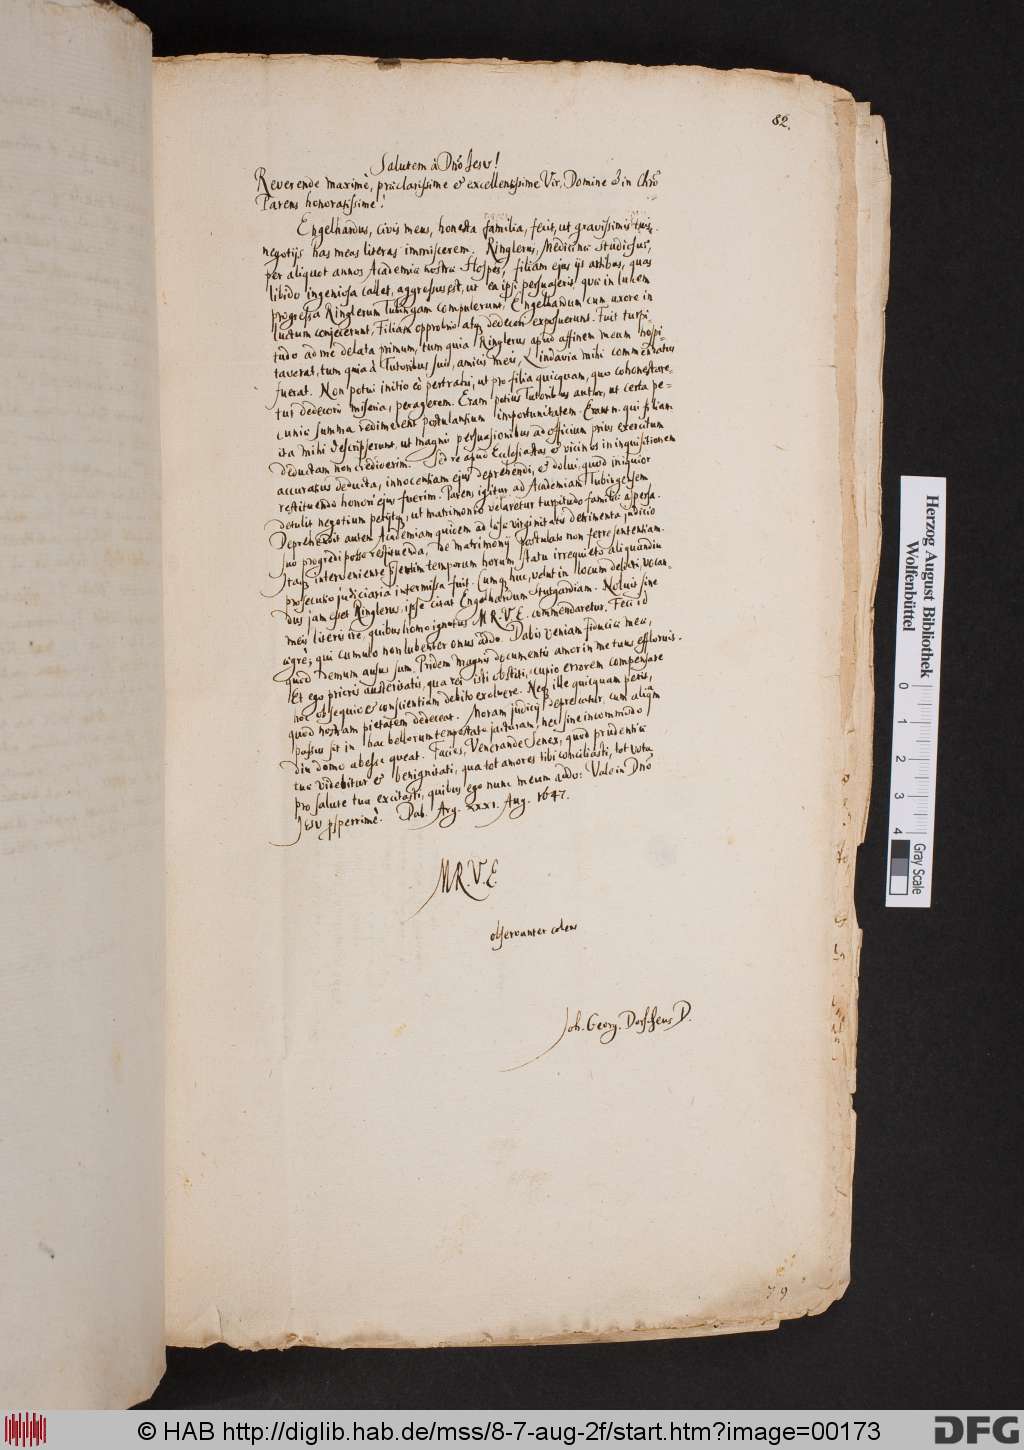 82.
Salutem à Dnô Jesu!
Reverende maximè, præclarissime & excellentissime Vir, Domine & in Chrô
Parens honoratissime!
Engelhardus, civis meus, honesta familia, fecit, ut gravissimis tuis
negotijs has meas literas immiscerem. Ringlerus, Medicinæ studiosus,
per aliquot annos Academiæ nostræ Hospes, filiam ejus ijs artibus, quas
libido ingeniosa callet, aggressus est, ut ea ipsi persuaserit, quæ in lucem
progressa Ringlerum Tubingam compulerunt, Engelhardum cum uxore in
luctum conjecerunt, Filiam opprobrio atq dedecori exposuerunt. Fuit turpi
tudo ad me delata primum, tum quia Ringlerus apud affinem meum hospi-
taverat, tum quia à Tutoribus suis, amicis meis, Lindavia mihi commendatus
fuerat. Non potui initio eò pertrahi, ut pro filia quicquam, quo cohonestare-
tur dedecoris miseria, peragerem. Eram potius Tutoribus autor, ut certa pe-
cuniæ summa redimerent postulantium importunitatem. Erant n. qui filiam
ita mihi descripserunt, ut magnis persuasionibus ad officium prius exercitum
deductam non crediverim. Sed re apud Ecclesiastas & vicinos in inquisitionem
accuratius deducta, innocentiam ejus deprehendi, & dolui, quod iniquior
restituendo honori ejus fuerim. Parens igitur ad Academiam Tubingensem
detulit negotium petijtq, ut matrimonio velaretur turpitudo familiæ aspersa.
Deprehendit autem Academiam quidem ad læsæ virginitatis detrimenta judicio
suo progredi posse restituenda, de matrimonij postulato non ferre sententiam.
Itaq interveniente præsertim temporum horum statu irrequieto aliquandiu
prosecutio judiciaria intermissa fuit. Cumq huc, velut in locum delicti, vocan-
dus jam esset Ringlerus, ipse citat Engelhardum Stutgardiam. Noluit sine
meis literis ire, quibus homo ignotus M.R.V.E. commendaretur. Feci id
ægrè, qui cumulo non lubenter onus addo. Dabis veniam fiduciæ meæ,
quod demum ausus sum. Pridem magnis documentis amor in me tuus effloruit.
Et ego prioris austeritatis, qua rei isti obstiti, cupio errorem compensare
hoc obsequio & conscientiam debito exolvere. Neq ille quicquam petit,
quod nostram pietatem dedeceat. Moram judicij deprecatur, cum aliquam
passus sit in hac bellorum tempestate jacturam, nec sine incommodo
diu domo abesse queat. Facies, Venerande Senex, quod prudentiæ
tuæ videbitur & benignitati, qua tot amores tibi conciliasti, tot vota
pro salute tua excitasti, quibus ego nunc meum addo: Vale in Dnô
Jesu prosperrimè. Dab. Arg. XXXI. Aug. 1647.
M.R.V.E.
observanter colens
Joh. Georg. Dorscheus D.
79
Herzog August Bibliothek
Wolfenbüttel
0 1 2 3 4
Gray Scale
© HAB http://diglib.hab.de/mss/8-7-aug-2f/start.htm?image=00173
DFG